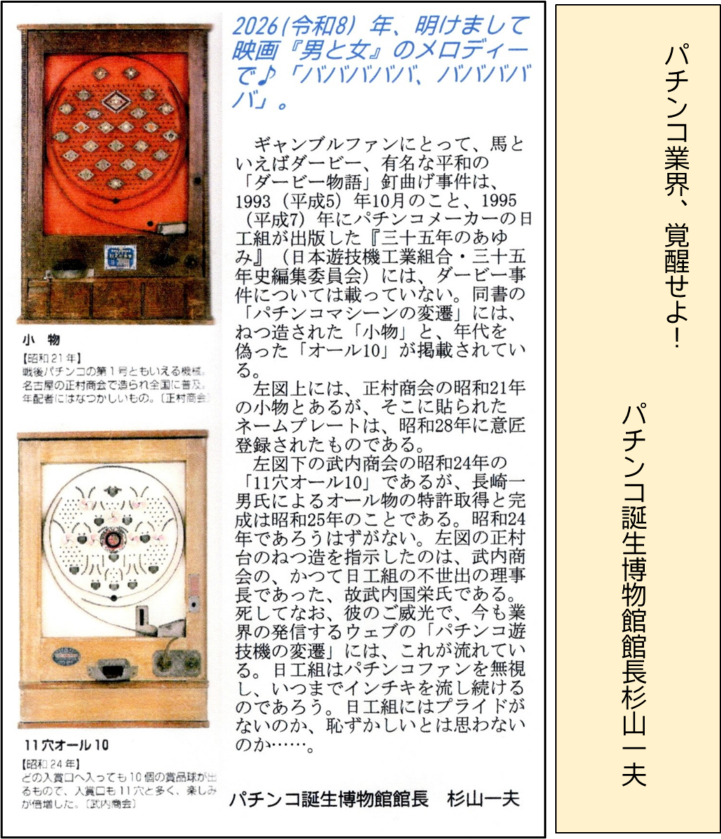 2026(令和8) 年、明けまして
映画『男と女』のメロディー
で♪「ババババババ、ババババ
バ」。
ギャンブルファンにとって、馬と
いえばダービー、有名な平和の
「ダービー物語」釘曲げ事件は、
1993（平成5）年10月のこと、1995
（平成7）年にパチンコメーカーの日
工組が出版した『三十五年のあゆ
み』（日本遊技機工業組合・三十五
年史編集委員会）には、ダービー事
件については載っていない。同書の
「パチンコマシーンの変遷」には、
ねつ造された「小物」と、年代を
偽った「オール10」が掲載されてい
る。
左図上には、正村商会の昭和21年
の小物とあるが、そこに貼られた
ネームプレートは、昭和28年に意匠
登録されたものである。
左図下の武内商会の昭和24年の
「11穴オール10」であるが、長崎一
男氏によるオール物の特許取得と完
成は昭和25年のことである。昭和24
年であろうはずがない。左図の正村
台のねつ造を指示したのは、武内商
会の、かつて日工組の不世出の理事
長であった、故武内国栄氏である。
死してなお、彼のご威光で、今も業
界の発信するウェブの「パチンコ遊
技機の変遷」には、これが流れてい
る。日工組はパチンコファンを無視
し、いつまでインチキを流し続ける
のであろう。日工組にはプライドが
ないのか、恥ずかしいとは思わない
のか……。
パチンコ誕生博物館館長　杉山一夫
小 物
【昭和21年】
戦後パチンコの第1号ともいえる機械。
名古屋の正村商会で造られ全国に普及。
年配者にはなつかしいもの。〔正村商会〕
11穴オール10
【昭和24年】
どの入賞口へ入っても10個の賞品球が出
るもので、入賞口も11穴と多く、楽しみ
が倍増した。〔武内商会〕
パチンコ業界、覚醒せよ！
パチンコ誕生博物館館長杉山一夫